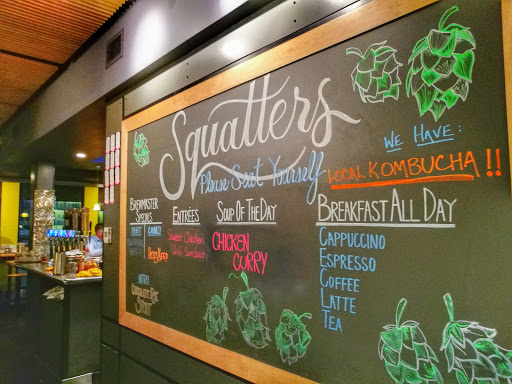 Squatters
Please Seat Yourself
WE HAVE:
LOCAL KOMBUCHA!!
BREWMASTER
SPECIALS
ENTRÉES
SOUP OF THE DAY
CHICKEN
CURRY
BREAKFAST ALL DAY
CAPPUCCINO
ESPRESSO
COFFEE
LATTE
TEA
STOUT